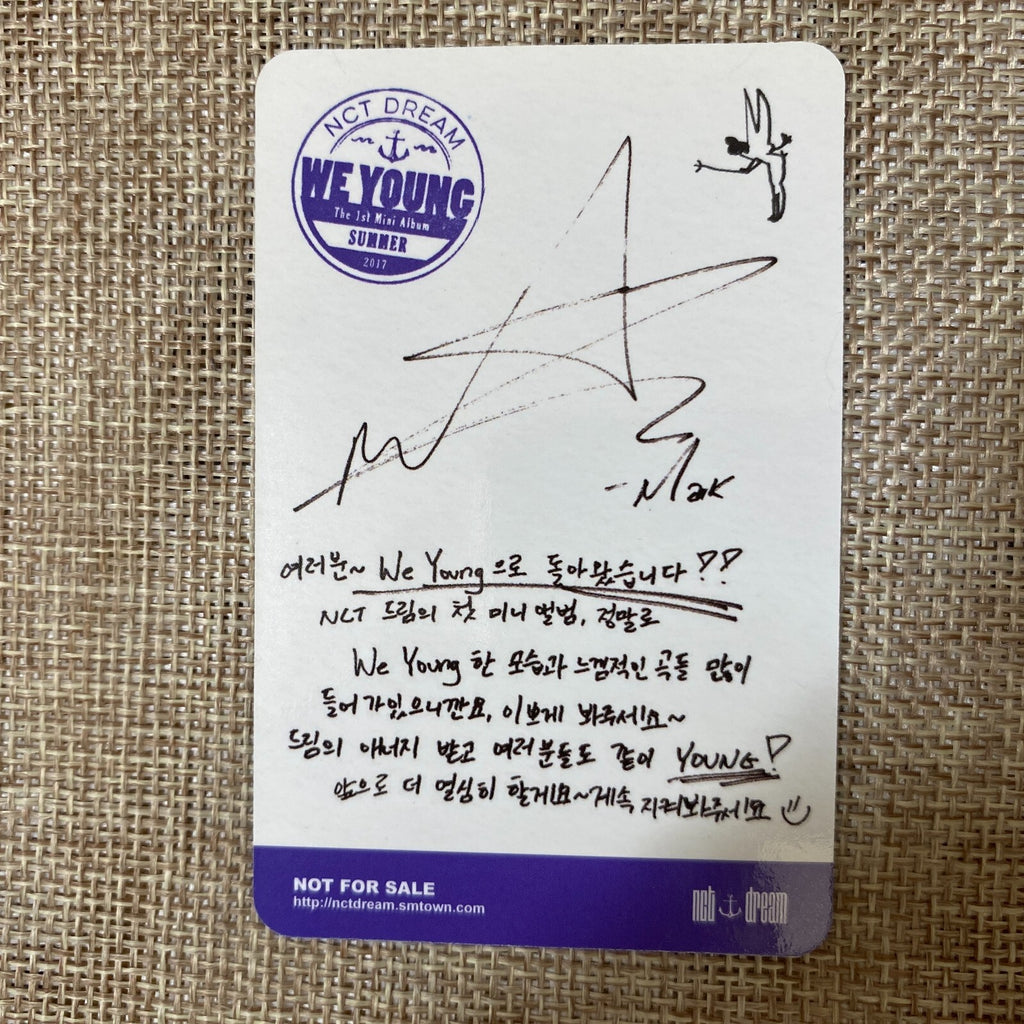 NCT DREAM
WE YOUNG
The 1st Mini Album
SUMMER
2017
-Mark
여러분~ We Young으로 돌아왔습니다!!
NCT 드림의 첫 미니 앨범, 정말로
We Young한 모습과 느낌적인 곡들 많이
들어가있으니깐요, 이쁘게 봐주세요~
드림의 에너지 받고 여러분들도 같이 YOUNG!
앞으로 더 열심히 할게요~계속 지켜봐주세요
NOT FOR SALE
http://nctdream.smtown.com
nct dream